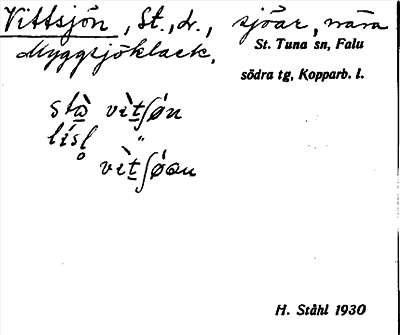 Vittsjön, St., L., sjöar, nära
Myggsjöklack.
St. Tuna sn, Falu
södra tg, Kopparb. l.
sta̱ vìt̠ʃø̀n
lísl̥ "
vìt̠ʃǿɷn
H. Ståhl 1930